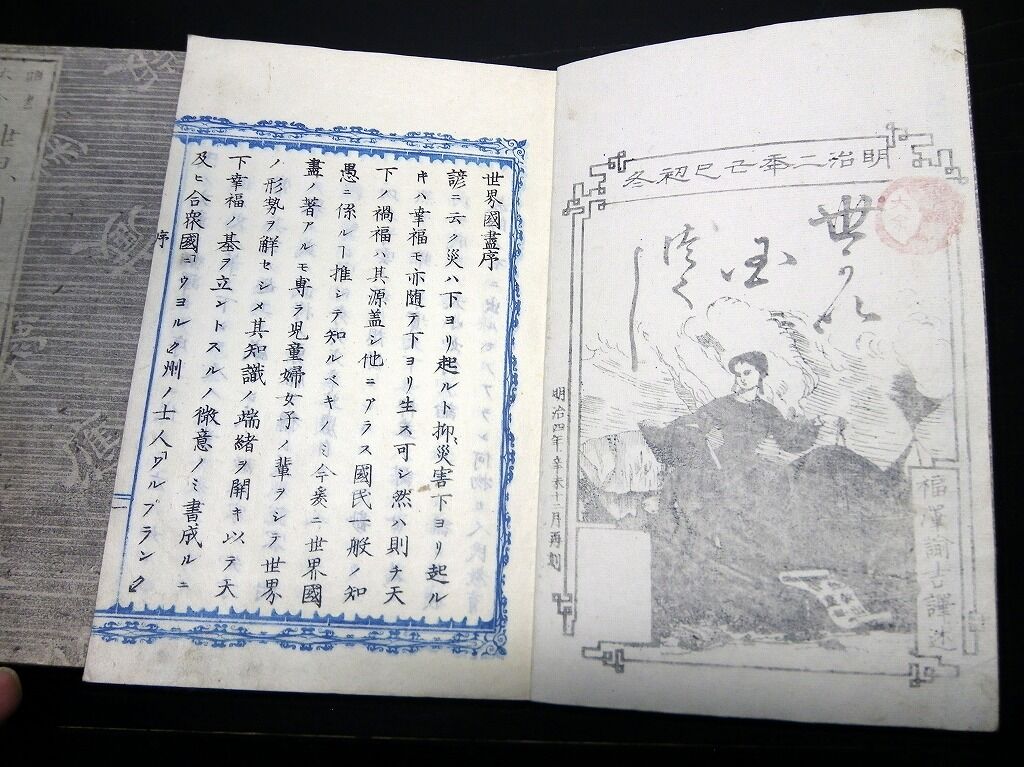 明治二年己巳初冬
世界
国
尽く
し
福澤諭吉譯述
明治四年辛未十二月再刻
世界國盡序
諺ニ云ク災ハ下ヨリ起ルト抑災害下ヨリ起ル
キハ幸福モ亦随テ下ヨリ生ス可シ然ハ則チ天
下ノ禍福ハ其源盖シ他ニアラス國民一般ノ知
愚ニ係ルヿ推シテ知ルベキノミ今爰ニ世界國
盡ノ著アルモ専ラ児童婦女子ノ輩ヲシテ世界
ノ形勢ヲ解セシメ其知識ノ端緒ヲ開キ以テ天
下幸福ノ基ヲ立ントスルノ微意ノミ書成ルニ
及ヒ合衆國「ニウヨルク」州ノ士人「ウルブランク」
序
一